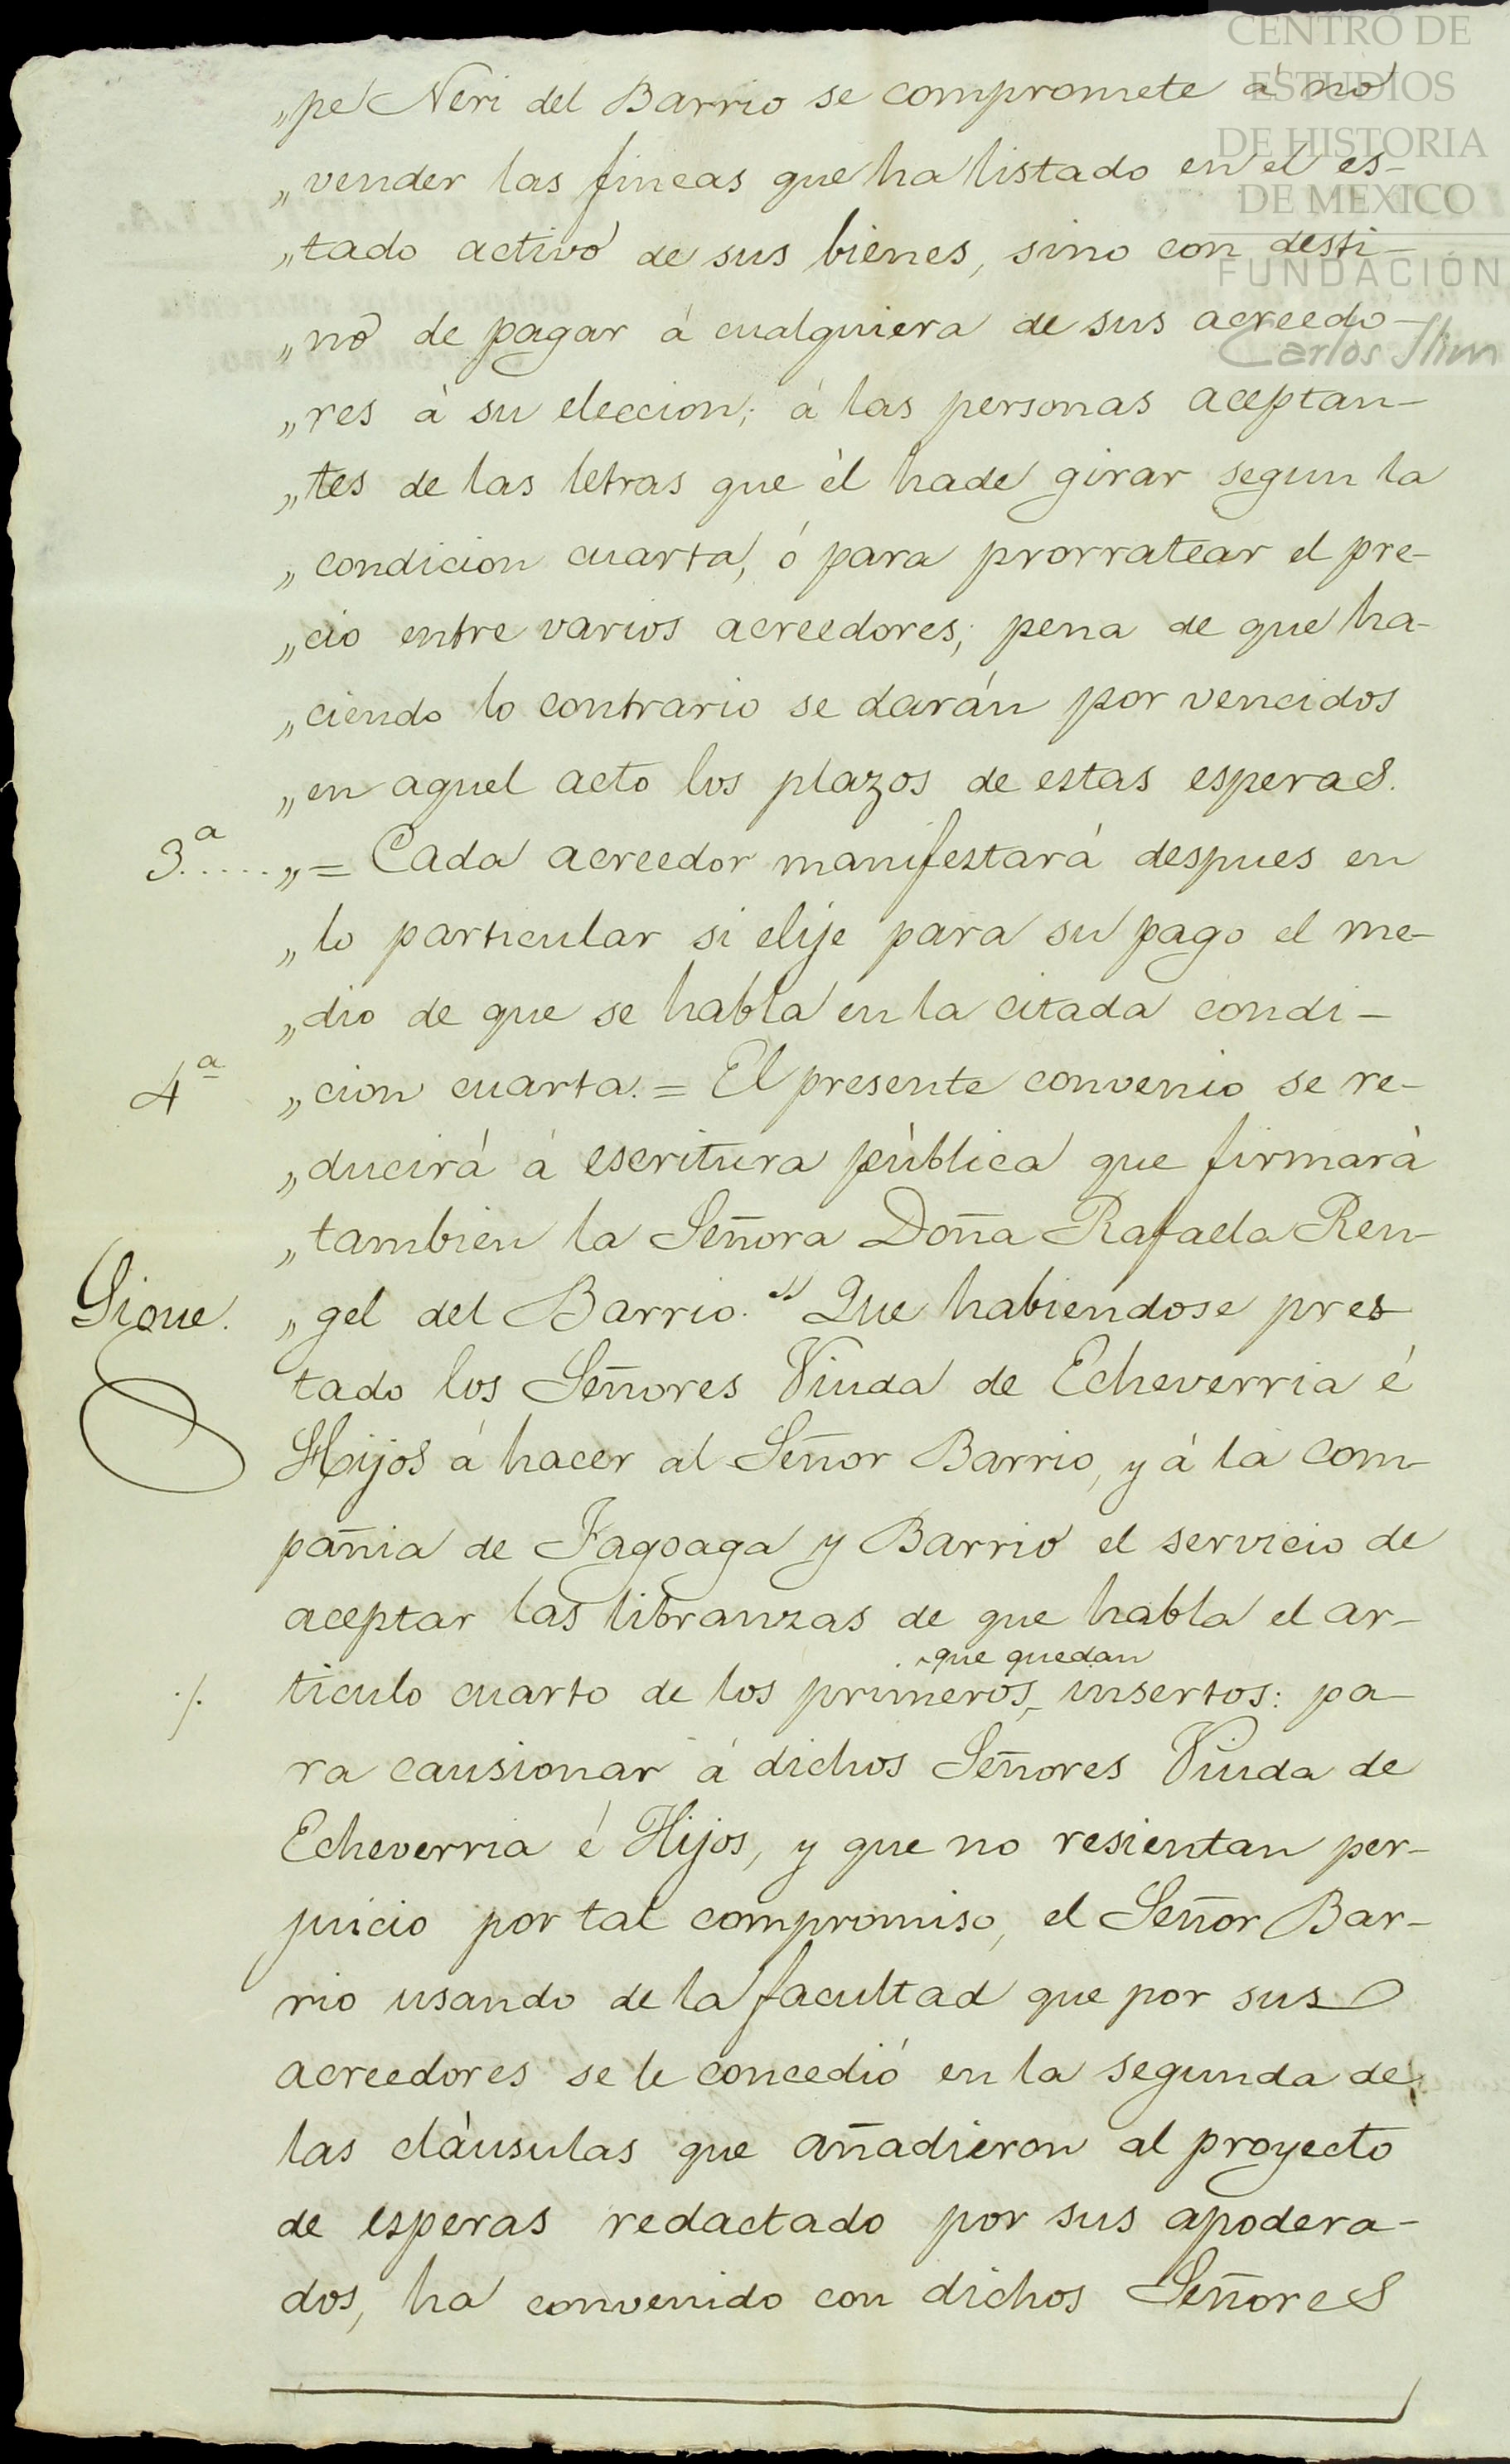 CENTRO DE
ESTUDIOS
DE HISTORIA
DE MEXICO
FUNDACIÓN
Carlos Slim
„pe Neri del Barrio se compromete á no
„vender las fincas que ha listado en el es-
„tado activo de sus bienes, sino con desti-
„no de pagar á cualquiera de sus acreedo-
„res á su eleccion; á las personas aceptan-
„tes de las letras que él hade girar segun la
„condicion cuarta, ó para prorratear el pre-
„cio entre varios acreedores; pena de que ha-
„ciendo lo contrario se darán por vencidos
„en aquel acto los plazos de estas esperas.
3.ª.... „= Cada acreedor manifestará despues en
„lo particular si elije para su pago el me-
„dio de que se habla en la citada condi-
4ª „cion cuarta. = El presente convenio se re-
„ducirá á escritura pública que firmará
„tambien la Señora Doña Rafaela Ren-
Sigue. „gel del Barrio." Que habiendose pres
tado los Señores Viuda de Echeverria é
Hijos á hacer al Señor Barrio, y á la com-
pañia de Fagoaga y Barrio el servicio de
aceptar las libranzas de que habla el ar-
que quedan
./. ticulo cuarto de los primeros insertos: pa-
ra causionar á dichos Señores Viuda de
Echeverria é Hijos, y que no resientan per-
juicio por tal compromiso, el Señor Bar-
rio usando de la facultad que por sus
acreedores se le concedió en la segunda de
las cláusulas que añadieron al proyecto
de esperas redactado por sus apodera-
dos, ha convenido con dichos Señores